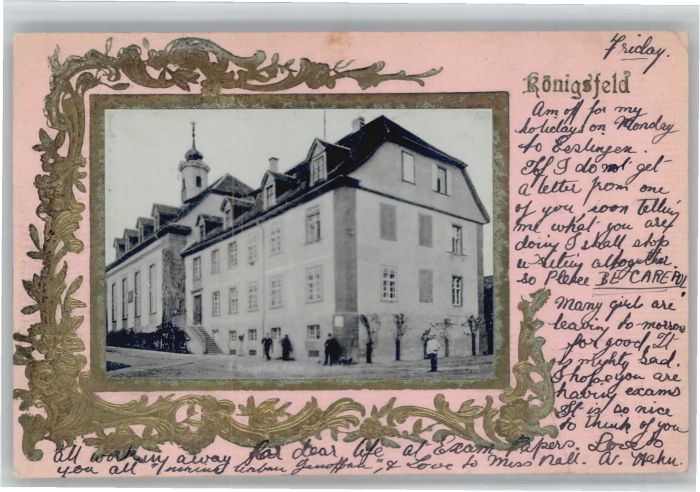 Friday.
Königsfeld
Am off for my
holidays on Monday
to Esslingen.
If I do not get
a letter from one
of you soon telling
me what you are
doing I shall stop
writing altogether
so Please BE CAREFUL
Many girls are
leaving to morrow
for good. It
is mighty sad.
I hope you are
having exams
It is so nice
to think of you
all working away for dear life at Exam Papers. Love to
you all " & Love to Miss Nall. A. Hahn.